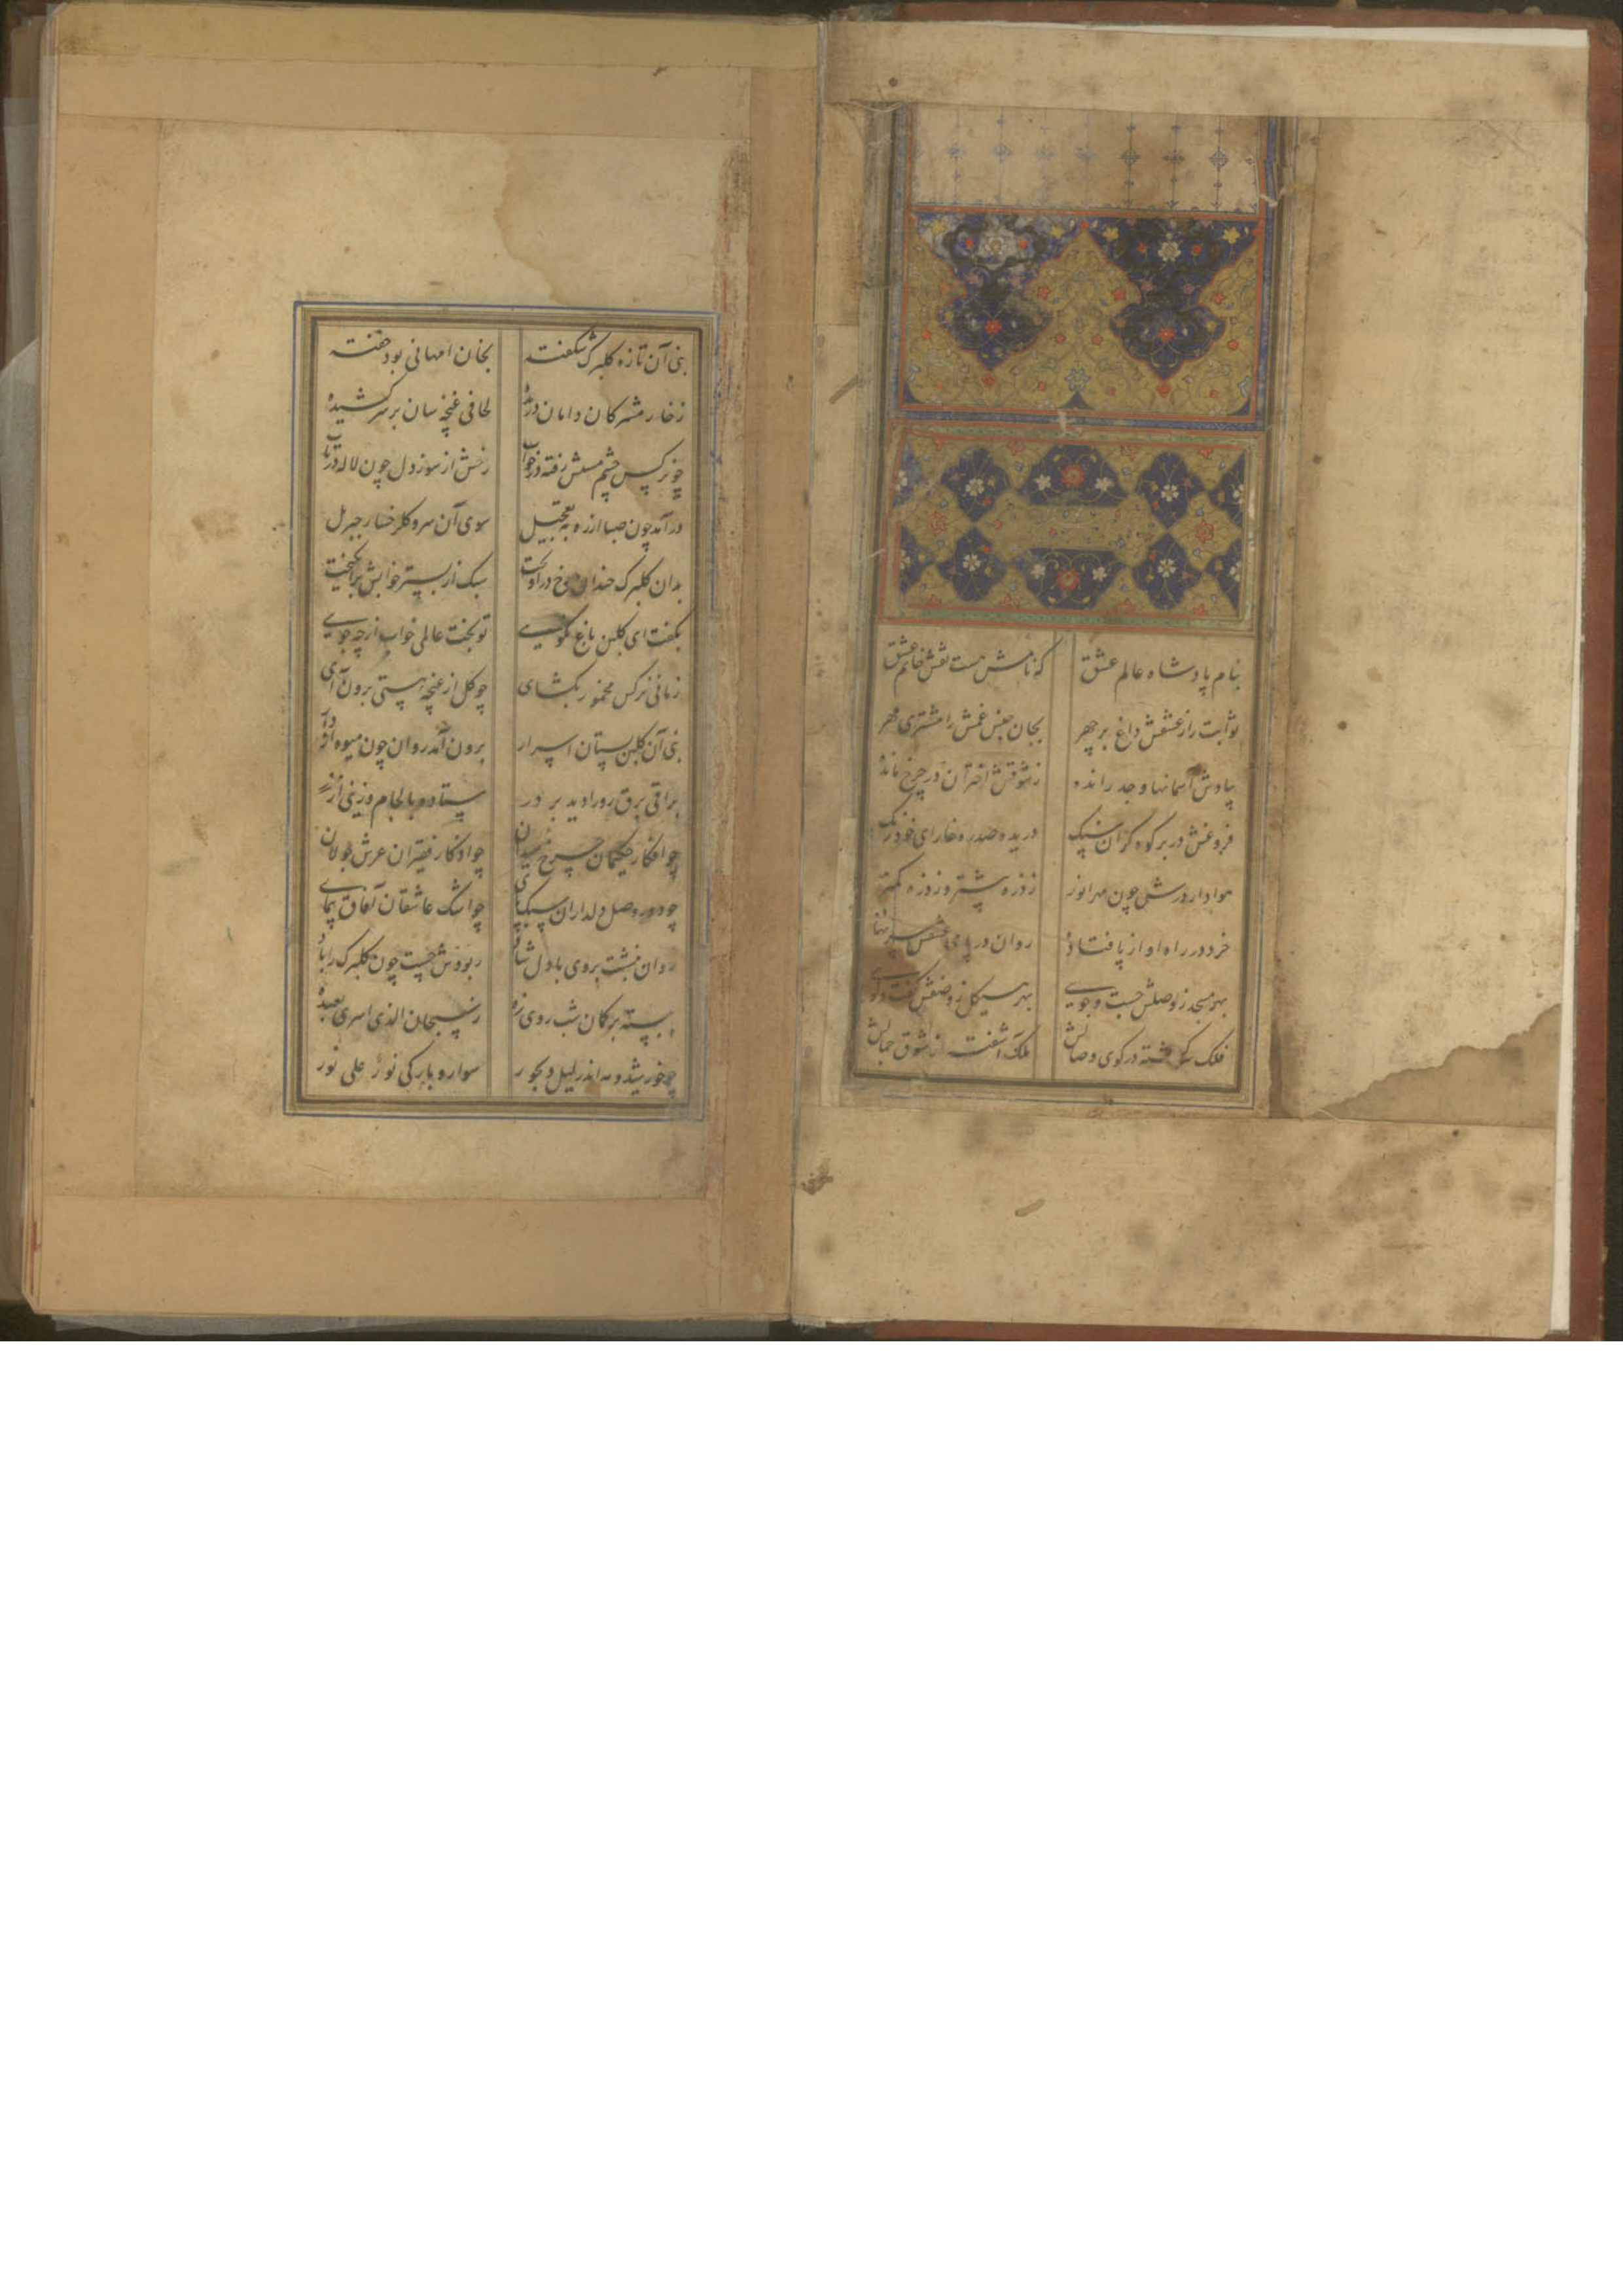 بنام پادشاه عالم عشق که نامش هست نقش خاتم عشق
ثوابت را ز عشقش داغ بر چهر بجان جنس غمش را مشتری مهر
بیادش آسمانها وجد رانده ز شوقش اختران در چرخ مانده
فروغش در بر کوه گران سنگ دریده صدره خارای
هوادار درش چون مهر انور ز ذره پیشتر وز ذره کمتر
خرد در راه او از پا فتاده روان در پای عشقش سر نهاده
بهر مسجد ز وصلش جست و جویی بهر هیکل ز وصفش گفت و گویی
فلک سرگشته در کوی وصالش ملک آشفته از شوق جمالش
نبی آن تازه گلبرگ شکفته بخان امهانی بود خفته
ز خار مشرکان دامان دریده لحافی غنچه سان بر سر کشیده
چو نرگس چشم مستش رفته در خواب رخش از سوز دل چون لاله در تاب
درآمد چون صبا از ره به تعجیل سوی آن سرو گلرخسار جبریل
بدان گلبرگ خندان رخ درآویخت سبک از بستر خوابش برانگیخت
بگفت ای گلبن باغ نکویی تو بخت عالمی خواب از چه جویی
زمانی نرگس مخمور بگشای چو گل از غنچه هستی برون آی
نبی آن گلبن بستان اسرار برون آمد روان چون میوه از دار
براقی برق رو را دید بر در ستاده با لجام و زینی از زر
چو افکار حکیمان چرخ میدان چو اذکار فقیران عرش جولان
چو دور وصل دلداران سبک پای چو اشک عاشقان آفاق پیمای
روان بنشست بروی با دل شاد ربودش چست چون گلبرگ را باد
ببسته بر کمان شب روی زه ز سبحان الذی اسری بعبده
چو خورشید و مه اندر لیل دیجور سوار و بارگی نور علی نور